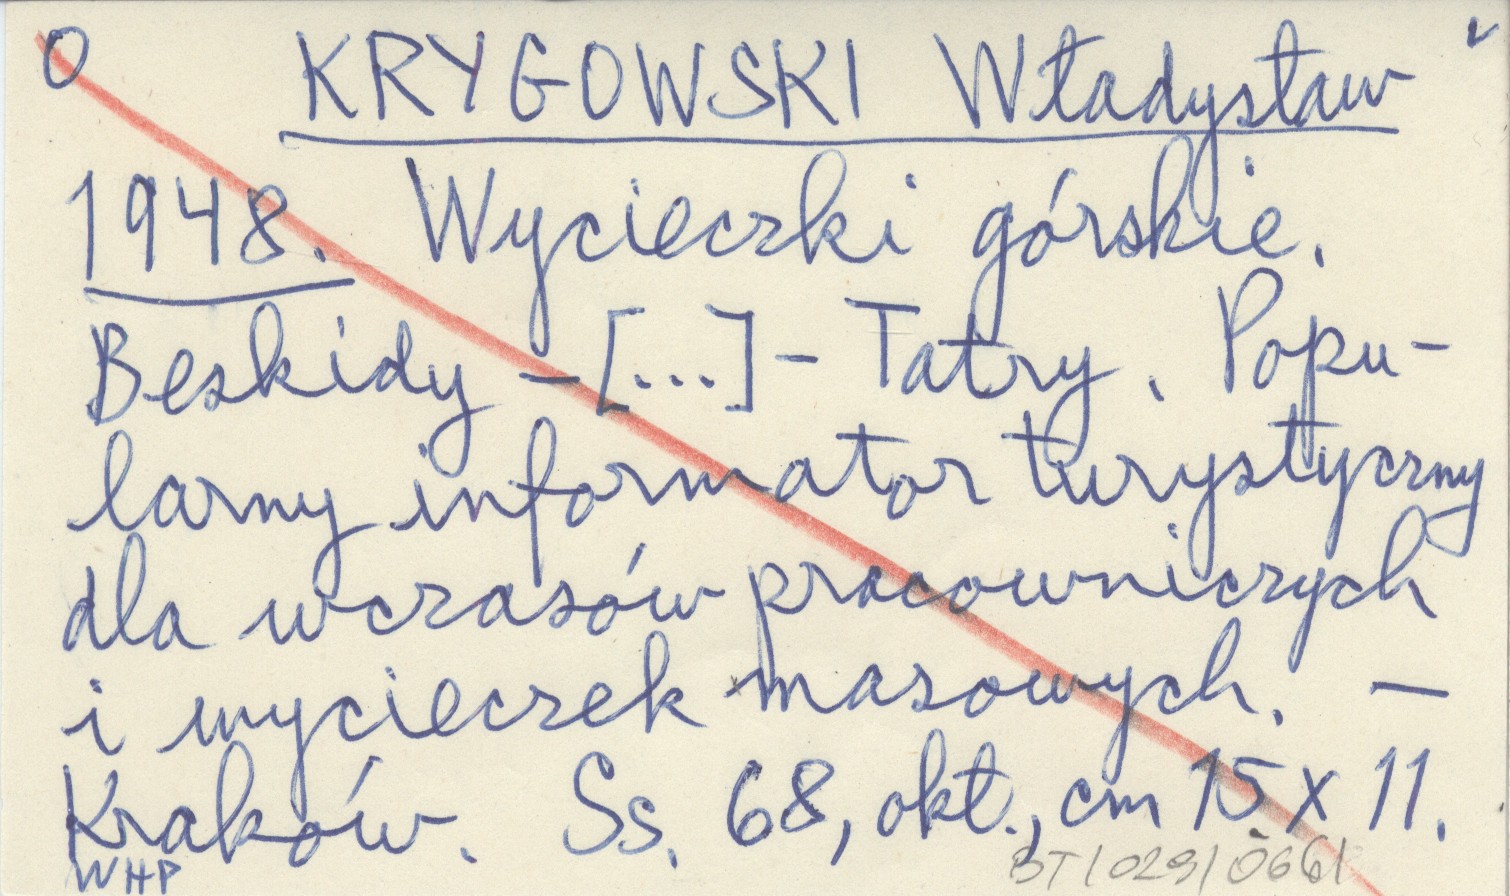 O KRYGOWSKI Władysław
1948. Wycieczki górskie.
Beskidy – [...] – Tatry. Popu-
larny informator turystyczny
dla wczasów pracowniczych
i wycieczek masowych. —
Kraków. Ss. 68, okt., cm 15 x 11.
WHP BT/029/066